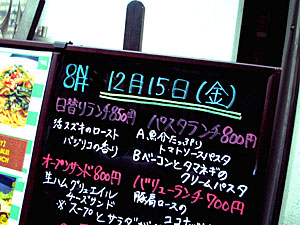 8N
8H
12月15日(金)
日替りランチ850円
活スズキのロースト
バジリコの香り
オープンサンド800円
生ハムグリュイエル
チーズサンド
※スープとサラダが
パスタランチ800円
A.魚介たっぷり
トマトソースパスタ
B.ベーコンとタマネギの
クリームパスタ
バリューランチ700円
豚肩ロースの
ココナッツ